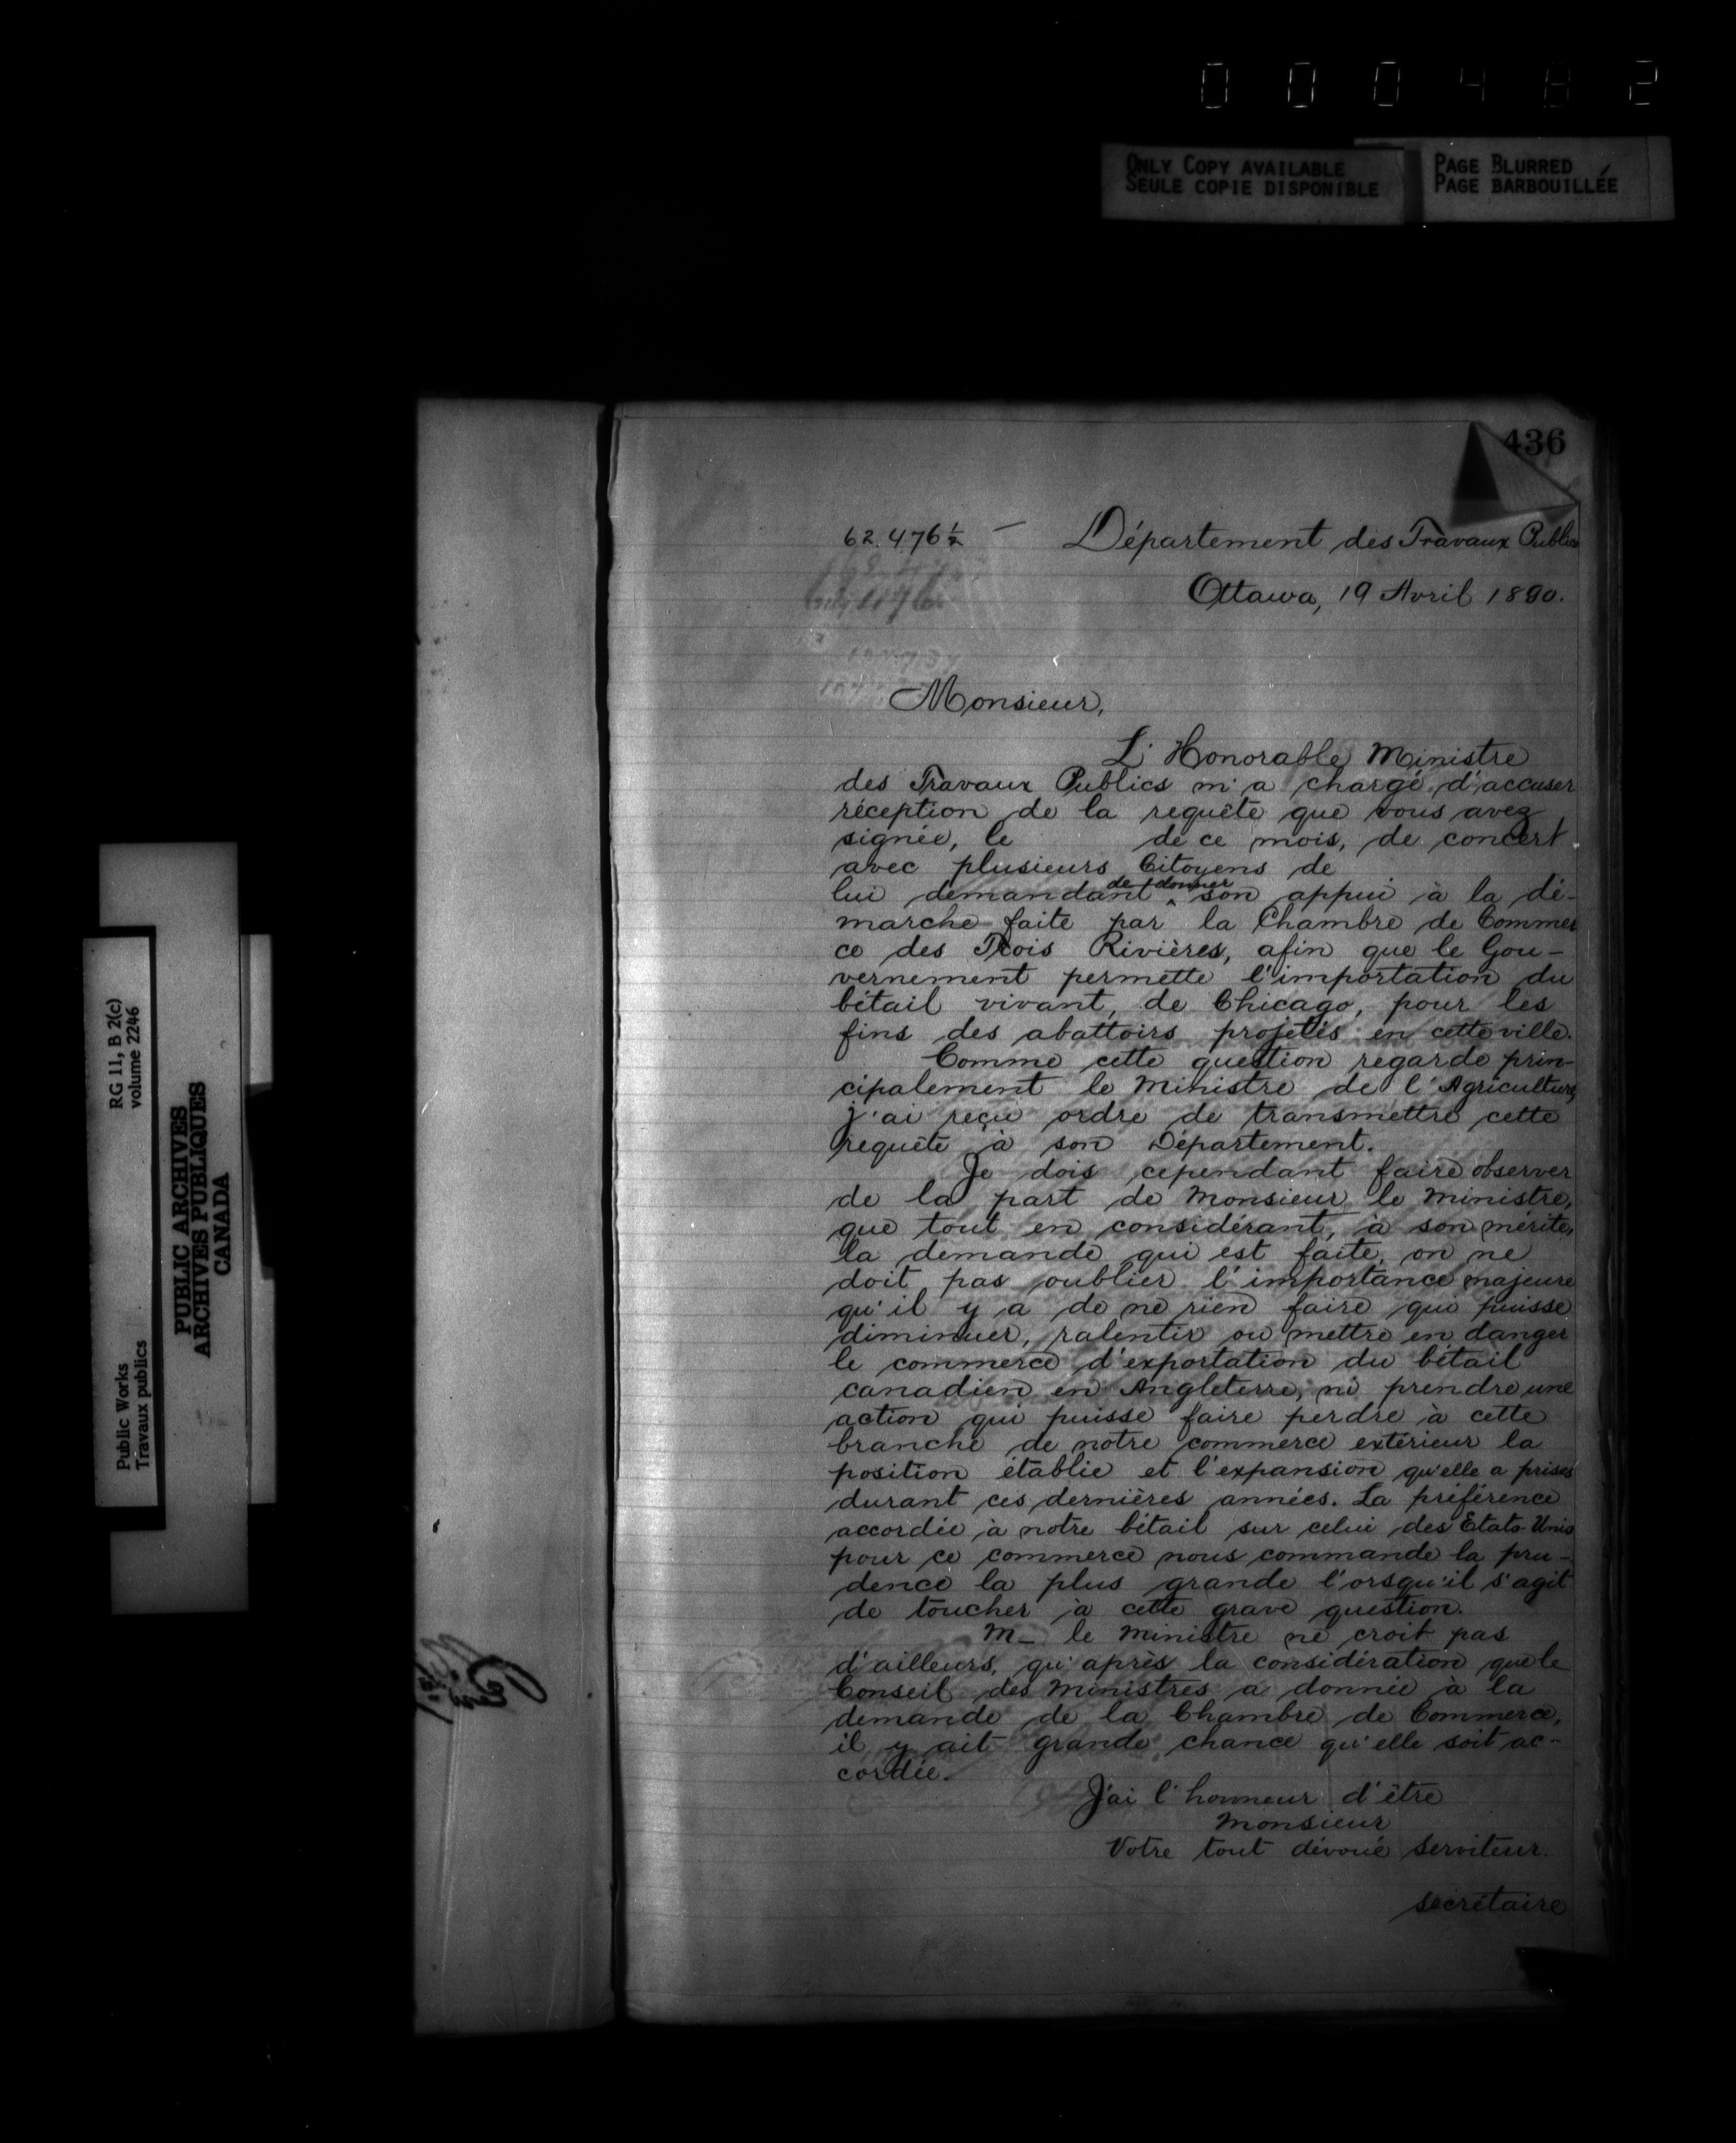 000482
ONLY COPY AVAILABLE
SEULE COPIE DISPONIBLE
PAGE BLURRED
PAGE BARBOUILLÉE
436
62.476½ —
Département des Travaux Publics
Ottawa, 19 Avril 1890.
Monsieur,
L'Honorable Ministre
des Travaux Publics m'a chargé d'accuser
réception de la requête que vous avez
signée, le de ce mois, de concert
avec plusieurs Citoyens de
lui demandant de donner son appui à la dé-
marche faite par la Chambre de Commer
ce des Trois Rivières, afin que le Gou-
vernement permette l'importation du
bétail vivant, de Chicago, pour les
fins des abattoirs projetés en cette ville.
Comme cette question regarde prin-
cipalement le Ministre de l'Agriculture,
j'ai reçu ordre de transmettre cette
requête à son Département.
Je dois cependant faire observer
de la part de Monsieur le Ministre,
que tout en considérant, à son mérite,
la demande qui est faite, on ne
doit pas oublier l'importance majeure
qu'il y a de ne rien faire qui puisse
diminuer, ralentir ou mettre en danger
le commerce d'exportation du bétail
canadien en Angleterre, ni prendre une
action qui puisse faire perdre à cette
branche de notre commerce extérieur la
position établie et l'expansion qu'elle a prises
durant ces dernières années. La préférence
accordée à notre bétail sur celui des Etats-Unis
pour ce commerce nous commande la pru-
dence la plus grande l'orsqu'il s'agit
de toucher à cette grave question.
M— le Ministre ne croit pas
d'ailleurs, qu'après la considération que le
Conseil des Ministres a donnée à la
demande de la Chambre de Commerce,
il y ait grande chance qu'elle soit ac-
cordée.
J'ai l'honneur d'être
Monsieur
Votre tout dévoué Serviteur.
secrétaire
RG 11, B 2(c)
volume 2246
Public Works
Travaux publics
PUBLIC ARCHIVES
ARCHIVES PUBLIQUES
CANADA